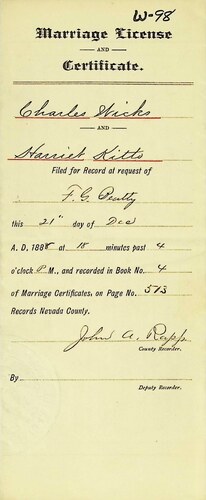 W-98
Marriage License
AND
Certificate.
Charles Wicks
AND
Harriet Kitts
Filed for Record at request of
F. G.
this 21" day of Dec
A. D. 188 at 15 minutes past 4
o'clock P M., and recorded in Book No. 4
of Marriage Certificates, on Page No. 513
Records Nevada County.
John A. Rapp
County Recorder.
By
Deputy Recorder.